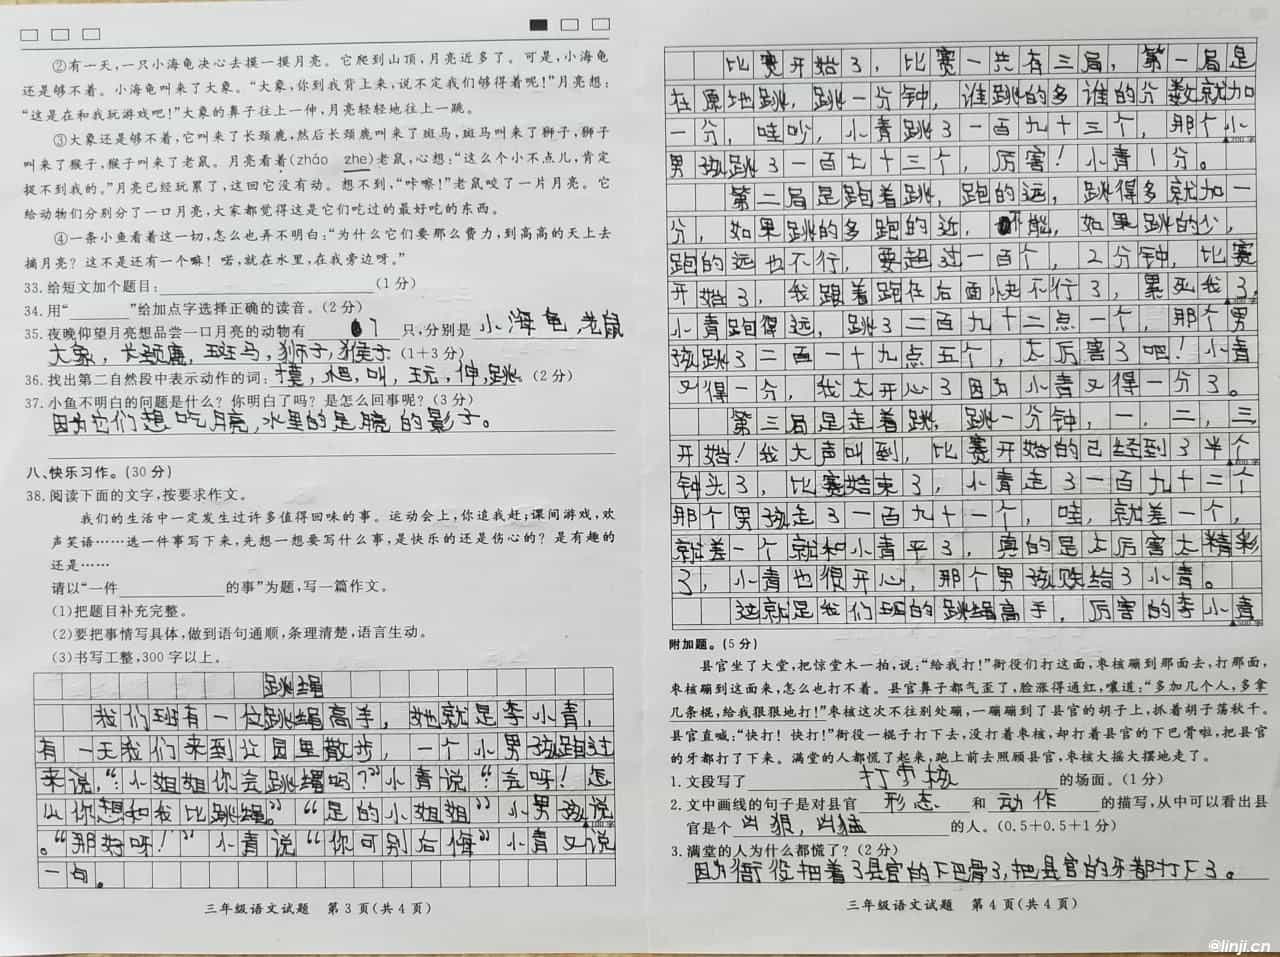 ②有一天,一只小海龟决心去摸一摸月亮。它爬到山顶,月亮近多了。可是,小海龟
还是够不着。小海龟叫来了大象。“大象,你到我背上来,说不定我们够得着呢!”月亮想:
“这是在和我玩游戏吧!”大象的鼻子往上一伸,月亮轻轻地往上一跳。
③大象还是够不着,它叫来了长颈鹿,然后长颈鹿叫来了斑马,斑马叫来了狮子,狮子
叫来了猴子,猴子叫来了老鼠。月亮看着(zháo zhe)老鼠,心想:“这么个小不点儿,肯定
捉不到我的。”月亮已经玩累了,这回它没有动。想不到,“咔嚓!”老鼠咬了一片月亮。它
给动物们分别分了一口月亮,大家都觉得这是它们吃过的最好吃的东西。
④一条小鱼看着这一切,怎么也弄不明白:“为什么它们要那么费力,到高高的天上去
摘月亮? 这不是还有一个嘛! 喏,就在水里,在我旁边呀。”
33. 给短文加个题目:(1分)
34. 用“ ”给加点字选择正确的读音。(2分)
35. 夜晚仰望月亮想品尝一口月亮的动物有 7 只,分别是 小海龟 老鼠
大象,长颈鹿,斑马,狮子,猴子 (1+3分)
36. 找出第二自然段中表示动作的词:摸,爬,叫,玩,伸,跳。(2分)
37. 小鱼不明白的问题是什么? 你明白了吗? 是怎么回事呢?(3分)
因为它们想吃月亮,水里的是月亮的影子。
八、快乐习作。(30分)
38. 阅读下面的文字,按要求作文。
我们的生活中一定发生过许多值得回味的事。运动会上,你追我赶;课间游戏,欢
声笑语……选一件事写下来,先想一想要写什么事,是快乐的还是伤心的? 是有趣的
还是……
请以“一件 的事”为题,写一篇作文。
(1)把题目补充完整。
(2)要把事情写具体,做到语句通顺,条理清楚,语言生动。
(3)书写工整,300字以上。
跳绳
我们班有一位跳绳高手,她就是李小青,
有一天我们来到公园里散步,一个小男孩跑过
来说,“小姐姐你会跳绳吗?”小青说“会呀!怎
么你想和我比跳绳。”“是的小姐姐”小男孩说
。“那好呀!”小青说“你可别后悔”小青又说
一句。
▲100字
三年级语文试题 第3页(共4页)
比赛开始了,比赛一共有三局,第一局是
在原地跳,跳一分钟,谁跳的多谁的分数就加
一分,哇吵,小青跳了一百九十三个,那个小
▲200字
男孩跳了一百七十三个,厉害!小青1分。
第二局是跑着跳,跑的远,跳得多就加一
分,如果跳的多跑的近,不能,如果跳的少,
跑的远也不行,要超过一百个,2分钟,比赛
开始了,我跟着跑在后面快不行了,累死我了,
小青跑得远,跳了二百九十二点一个,那个男
孩跳了二百一十九点五个,太厉害了吧!小青
又得一分,我太开心了因为小青又得一分了。
第三局是走着跳,跳一分钟,一,二,三
开始!我大声叫到,比赛开始的已经到了半个
钟头了,比赛结束了,小青走了一百九十二个
那个男孩走了一百九十一个,哇,就差一个,
就差一个就和小青平了,真的是太厉害太精彩
了,小青也很开心,那个男孩败给了小青。
这就是我们班的跳绳高手,厉害的李小青
附加题。(5分)
县官坐了大堂,把惊堂木一拍,说:“给我打!”衙役们打这面,枣核蹦到那面去,打那面,
枣核蹦到这面来,怎么也打不着。县官鼻子都气歪了,脸涨得通红,嚷道:“多加几个人,多拿
几条棍,给我狠狠地打!”枣核这次不往别处蹦,一蹦蹦到了县官的胡子上,抓着胡子荡秋千。
县官直喊:“快打! 快打!”衙役一棍子打下去,没打着枣核,却打着县官的下巴骨啦,把县官
的牙都打了下来。满堂的人都慌了起来,跑上前去照顾县官,枣核大摇大摆地走了。
1. 文段写了 打枣核 的场面。(1分)
2. 文中画线的句子是对县官 形态 和 动作 的描写,从中可以看出县
官是个 凶狠,凶猛 的人。(0.5+0.5+1分)
3. 满堂的人为什么都慌了?(2分)
因为衙役把着了县官的下巴骨了,把县官的牙都打下了。
三年级语文试题 第4页(共4页)
@linji.cn